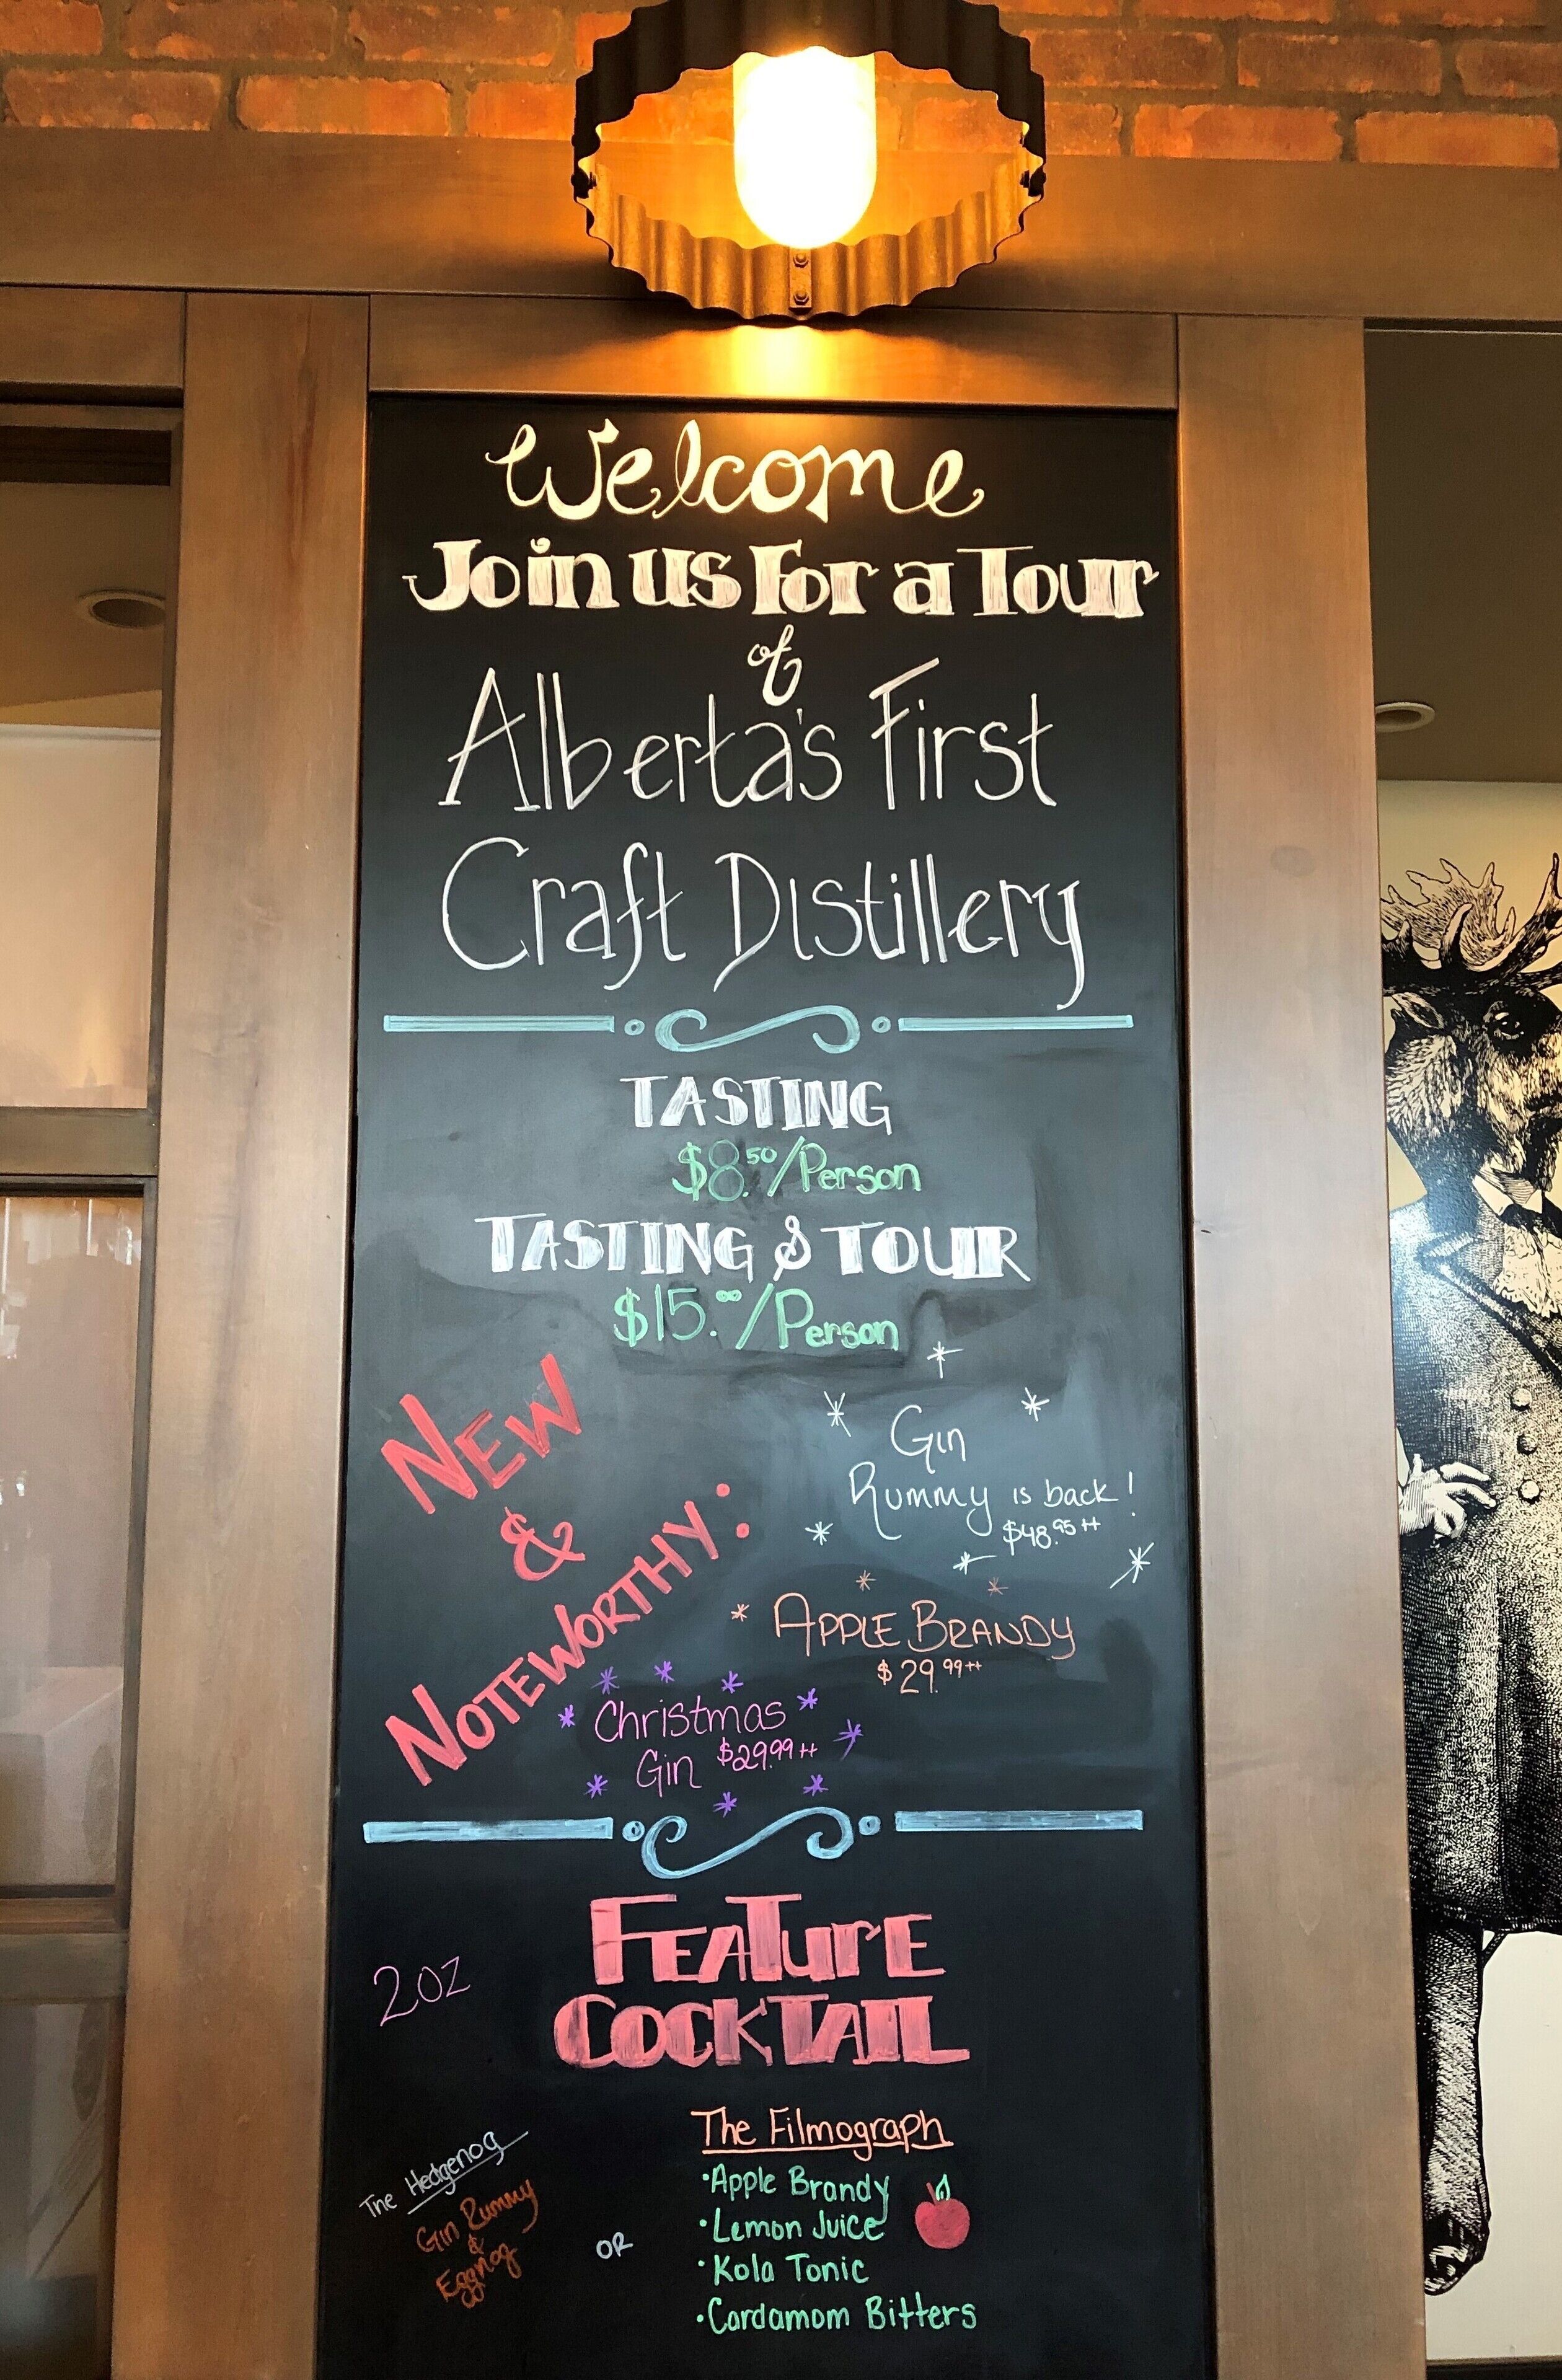 Welcome
Join us For a Tour
of
Alberta's First
Craft Distillery
TASTING
$8.50/Person
TASTING & TOUR
$15.00/Person
NEW
&
NOTEWORTHY:
Gin
Rummy is back!
$48.95++
APPLE BRANDY
$29.99++
Christmas
Gin $29.99++
FEATURE
COCKTAIL
2oz
The Hedgenog
Gin Rummy
&
Eggnog
OR
The Filmograph
•Apple Brandy
•Lemon Juice
•Kola Tonic
•Cardamom Bitters